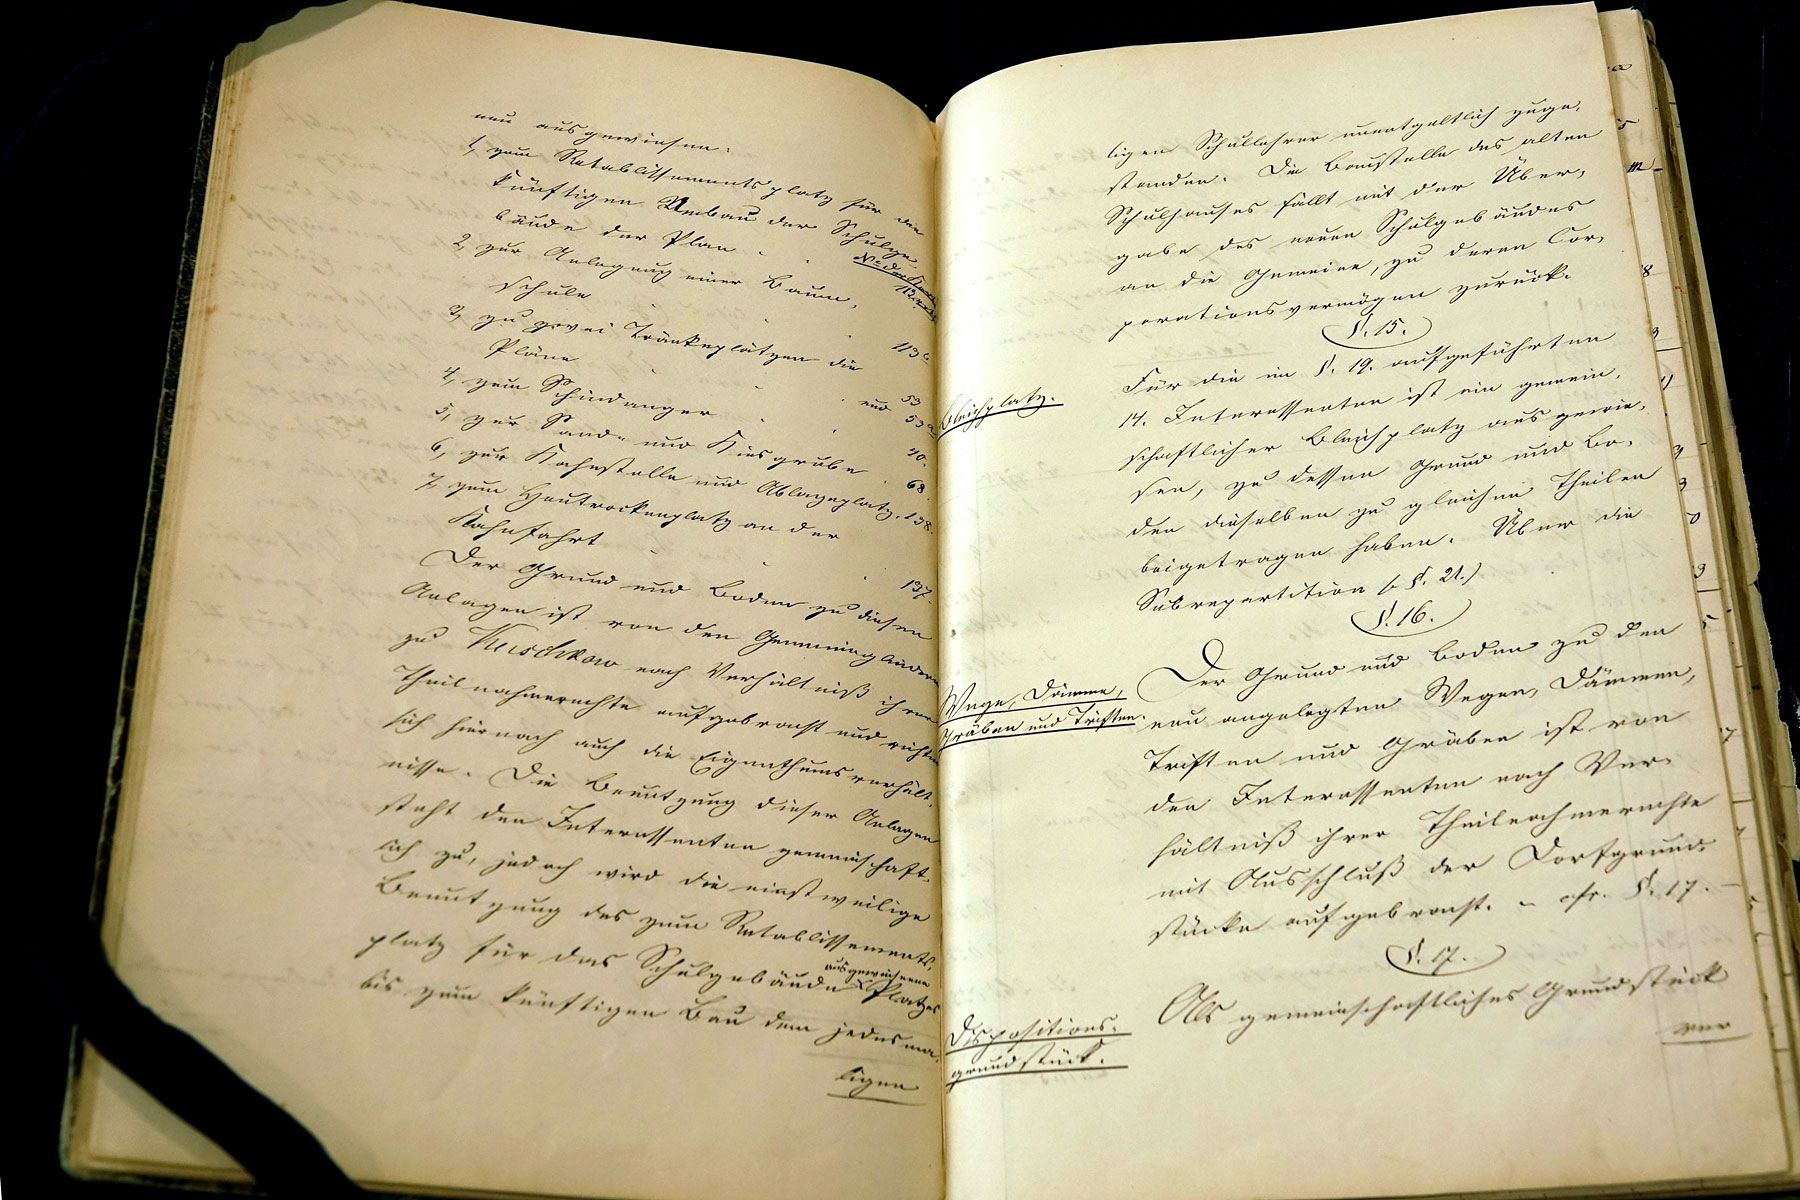 neu ausgewiesen:
1, zum Retablissementsplatz für den
künftigen Umbau der Schulge-
bäude der Plan . .
112
2, zur Anlegung einer Baum-
schule . . 113
3, zu zwei Tränkeplätzen die
Pläne . . 53
und 53a
4, zum Schindanger . . 40.
5, zur Sand- und Kiesgrube . 68.
6, zur Kahnstelle und Ablageplatz. 138.
7, zum Heutrockenplatz an der
Kahnfahrt . . 137.
Der Grund und Boden zu diesen
Anlagen ist von den Gemeinegliedern
zu Kuschkow nach Verhältniß ihrer
Theilnahmerechte aufgebracht und richten
sich hiernach auch die Eigenthumsverhält-
nisse. Die Benutzung dieser Anlagen
steht den Interessenten gemeinschaft-
lich zu, jedoch wird die einstweilige
Benutzung des zum Retablissements-
platz für das Schulgebäude ausgewiesenen Platzes
bis zum künftigen Bau dem jedesma-
ligen
ligen Schullehrer unentgeltlich zuge-
standen. Die Baustelle des alten
Schulhauses fällt mit der Über-
gabe des neuen Schulgebäudes
an die Gemeine, zu deren Cor-
porationsvermögen zurück.
§. 15.
Bleichplatz.
Für die im §. 19. aufgeführten
14. Interessenten ist ein gemein-
schaftlicher Bleichplatz ausgewie-
sen, zu dessen Grund und Bo-
den dieselben zu gleichen Theilen
beigetragen haben. Über die
Subrepartition (s. §. 21.)
§. 16.
Wege, Dämme,
Gräben und Triften.
Der Grund und Boden zu den
neu angelegten Wegen, Dämmen,
Triften und Gräben ist von
den Interessenten nach Ver-
hältniß ihrer Theilnahmerechte
mit Ausschluß der Dorfgrund-
stücke aufgebracht. – cfr. §. 17. –
§. 17.
Dispositions-
grundstück.
Als gemeinschaftliches Grundstück